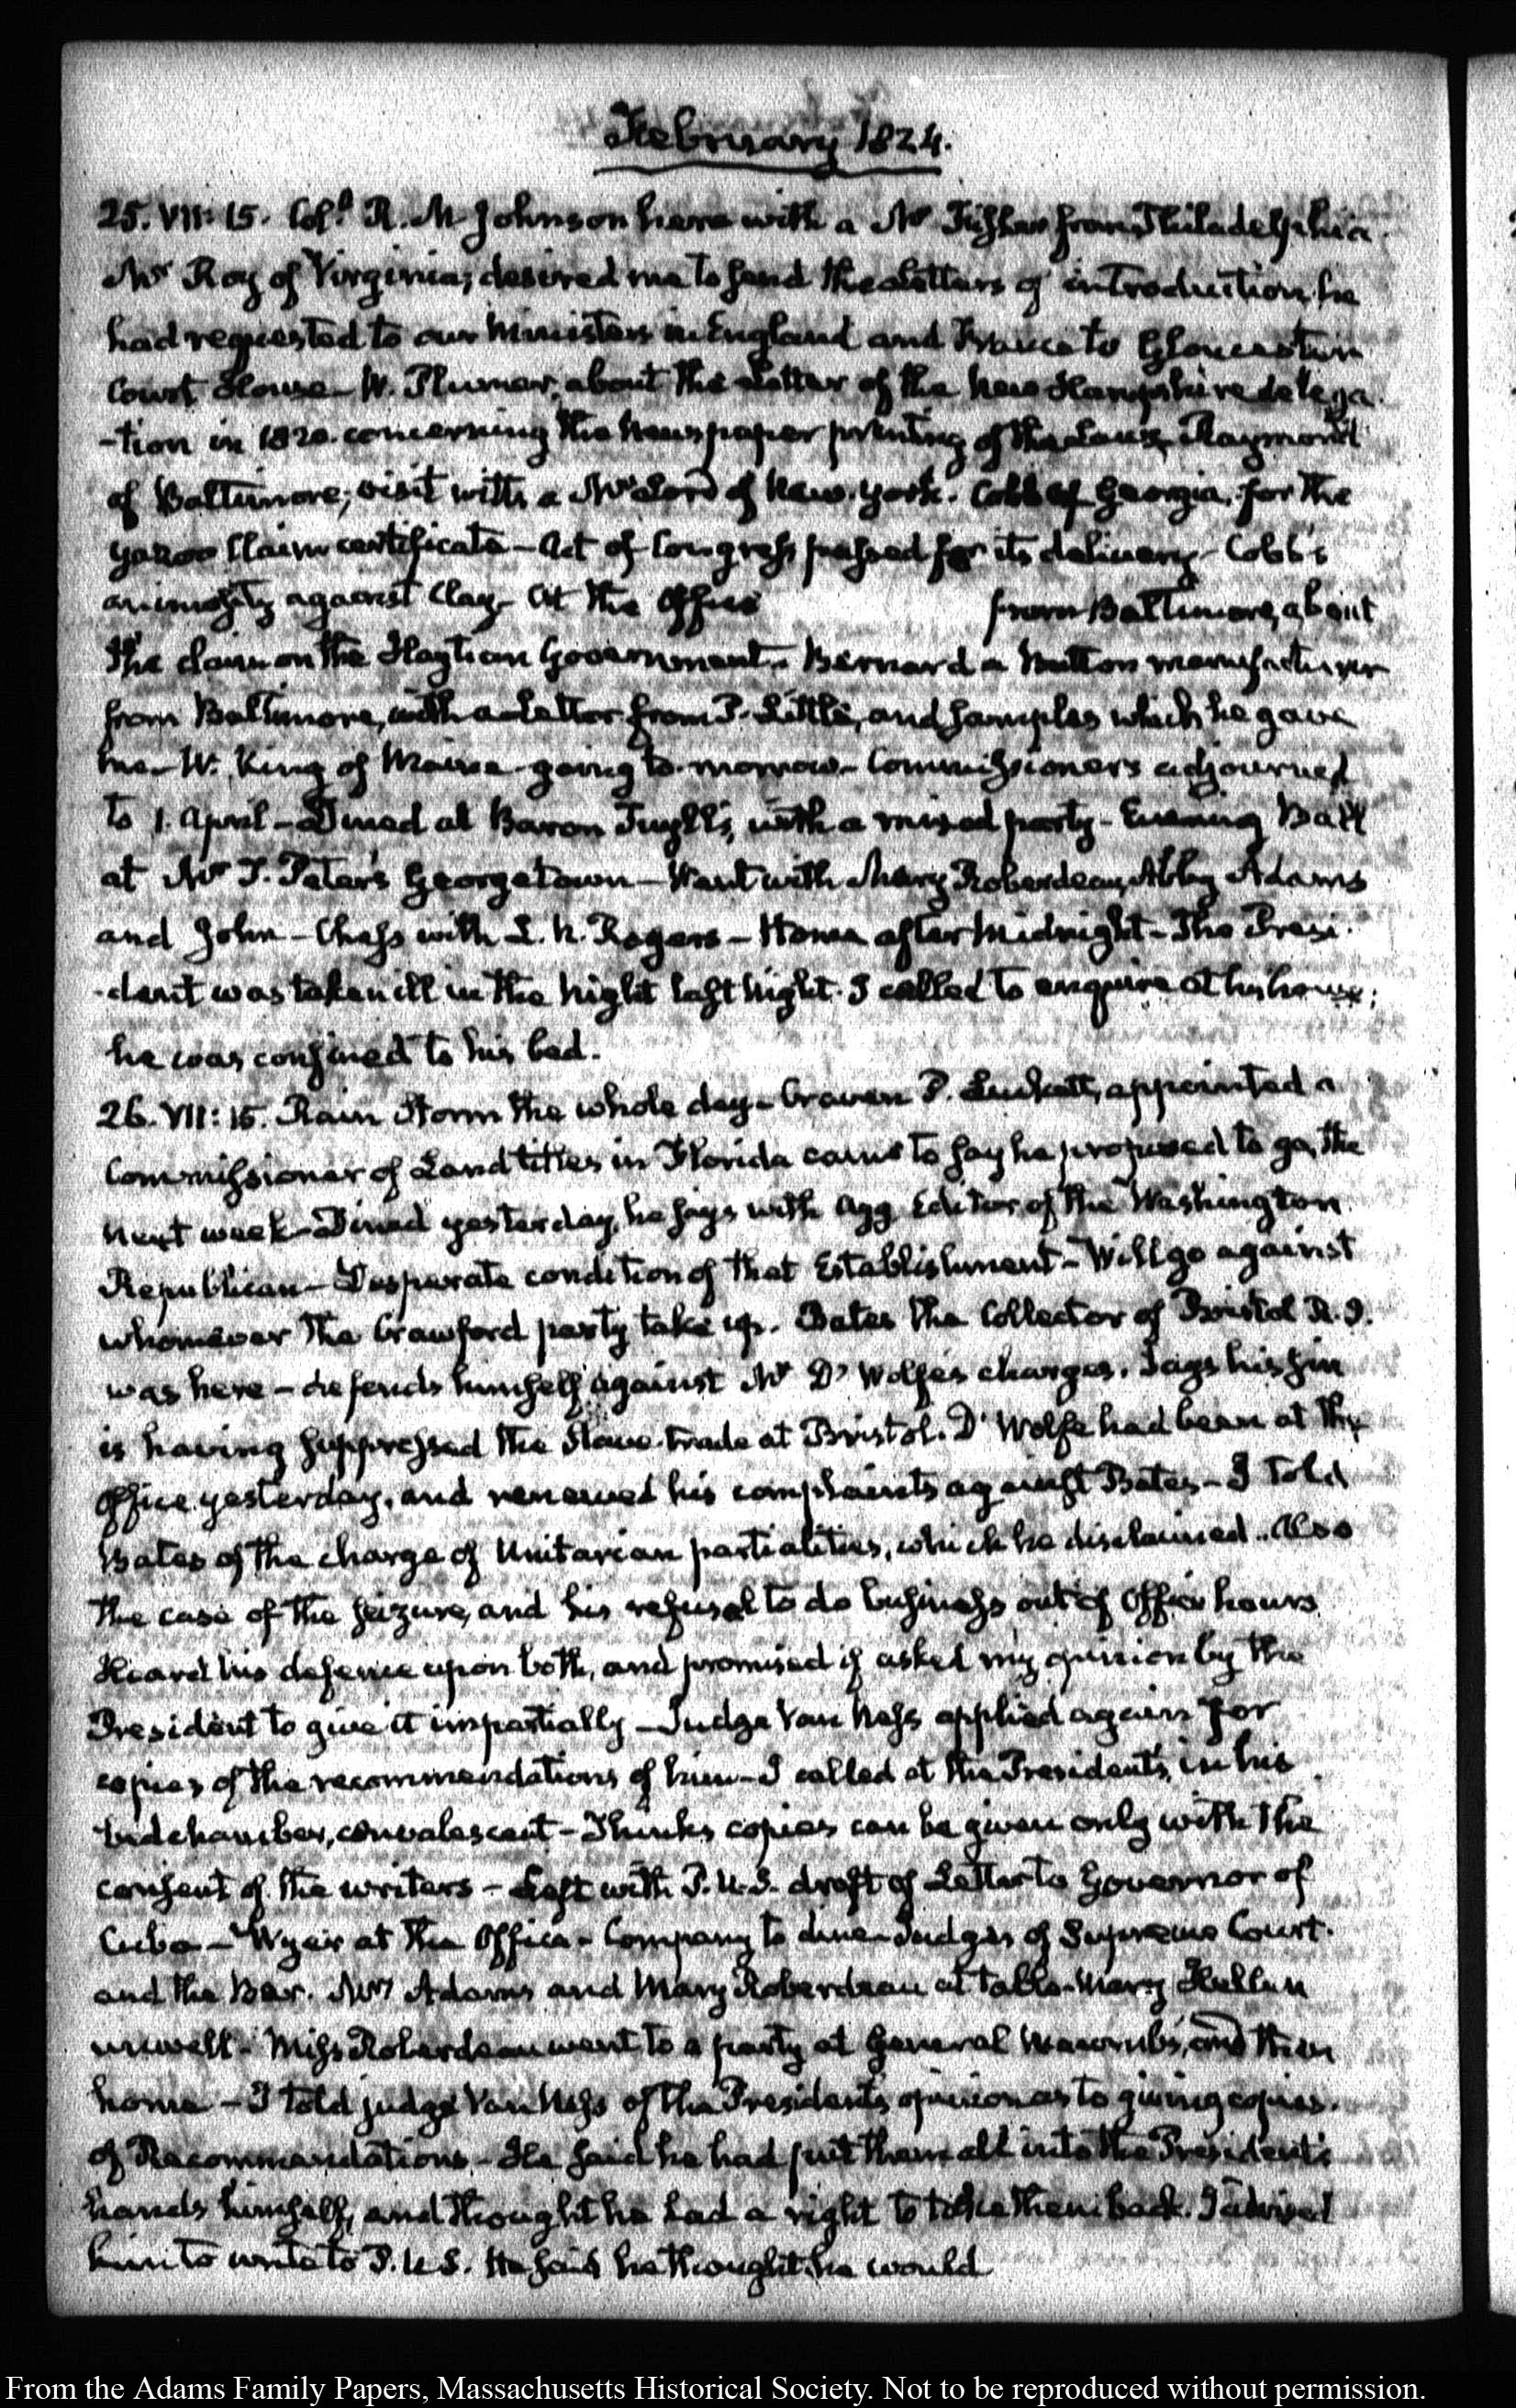 February 1824.
25. VII: 15. Col.l R. M Johnson here with a Mr Fisher from Philadelphia.
Mr Roy of Virginia; desired me to send the Letters of introduction, he
had requested to our Ministers in England and France to Gloucester
Court House — W. Plumer, about the Letter of the New Hampshire delega-
-tion in 1820. concerning the Newspaper printing of the Laws. Raymond
of Baltimore; visit with a Mr Lord of New-York. Cobb of Georgia, for the
Yazoo Claim certificate — Act of Congress passed for its delivery — Cobb's
animosity against Clay — At the Office from Baltimore, about
the claim on the Haytian Government — Bernard a Button manufacturer
from Baltimore, with a Letter from P. Little, and samples which he gave
me — W. King of Maine going to-morrow — Commissioners adjourned
to 1. April — Dined at Baron Tuyll's, with a mixed party — Evening Ball
at Mr T. Peter's Georgetown — Went with Mary Roberdeau, Abby Adams
and John — Chess with L. N. Rogers — Home after Midnight — The Presi-
-dent was taken ill in the Night last Night. I called to enquire at his house;
he was confined to his bed.
26. VII: 15. Rain Storm the whole day — Craven P. Luckett, appointed a
Commissioner of Land titles in Florida came to say he proposed to go, the
next week — Dined yesterday, he says with Agg Editor of the Washington
Republican — Desperate condition of that Establishment — Will go against
whomever the Crawford party take up. Bates the Collector of Bristol R.I.
was here — defends himself against Mr D'Wolfe's charges. Says his sin
is having suppressed the Slave-trade at Bristol. D'Wolfe had been at the
Office yesterday, and renewed his complaints against Bates — I told
Bates of the charge of Unitarian partialities, which he disclaimed. Also
the case of the seizure, and his refusal to do business out of Office hours
Heard his defence upon both, and promised if asked my opinion by the
President to give it impartially — Judge Van Ness applied again for
copies of the recommendations of him — I called at the President's, in his
bedchamber, convalescent — Thinks copies can be given only with the
consent of the writers — Left with P. U.S. draft of Letter to Governor of
Cuba — Wyer at the Office — Company to dine — Judges of Supreme Court.
and the Bar. Mrs Adams and Mary Roberdeau at table — Mary Hellen
unwell — Miss Roberdeau went to a party at General Macomb's, and then
home — I told judge Van Ness of the President's opinion as to giving copies.
of Recommendations — He said he had put them all into the President's
hands himself, and thought he had a right to take them back. I advised
him to write to P. U.S. He said he thought he would
From the Adams Family Papers, Massachusetts Historical Society. Not to be reproduced without permission.